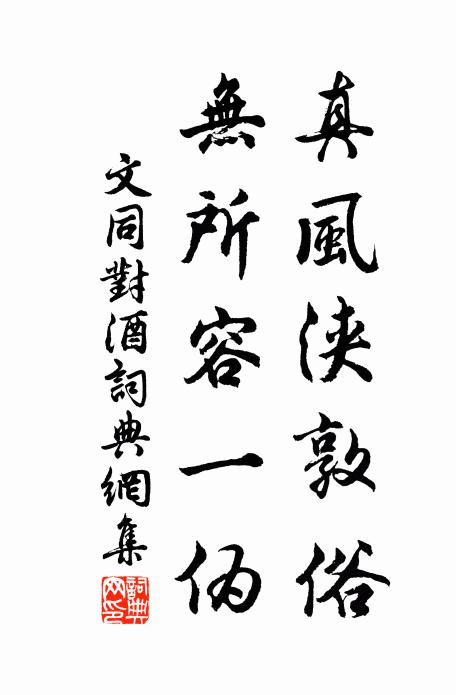 真風浹敦俗
無所容一伪
文同對酒詞典網集
詞典網印